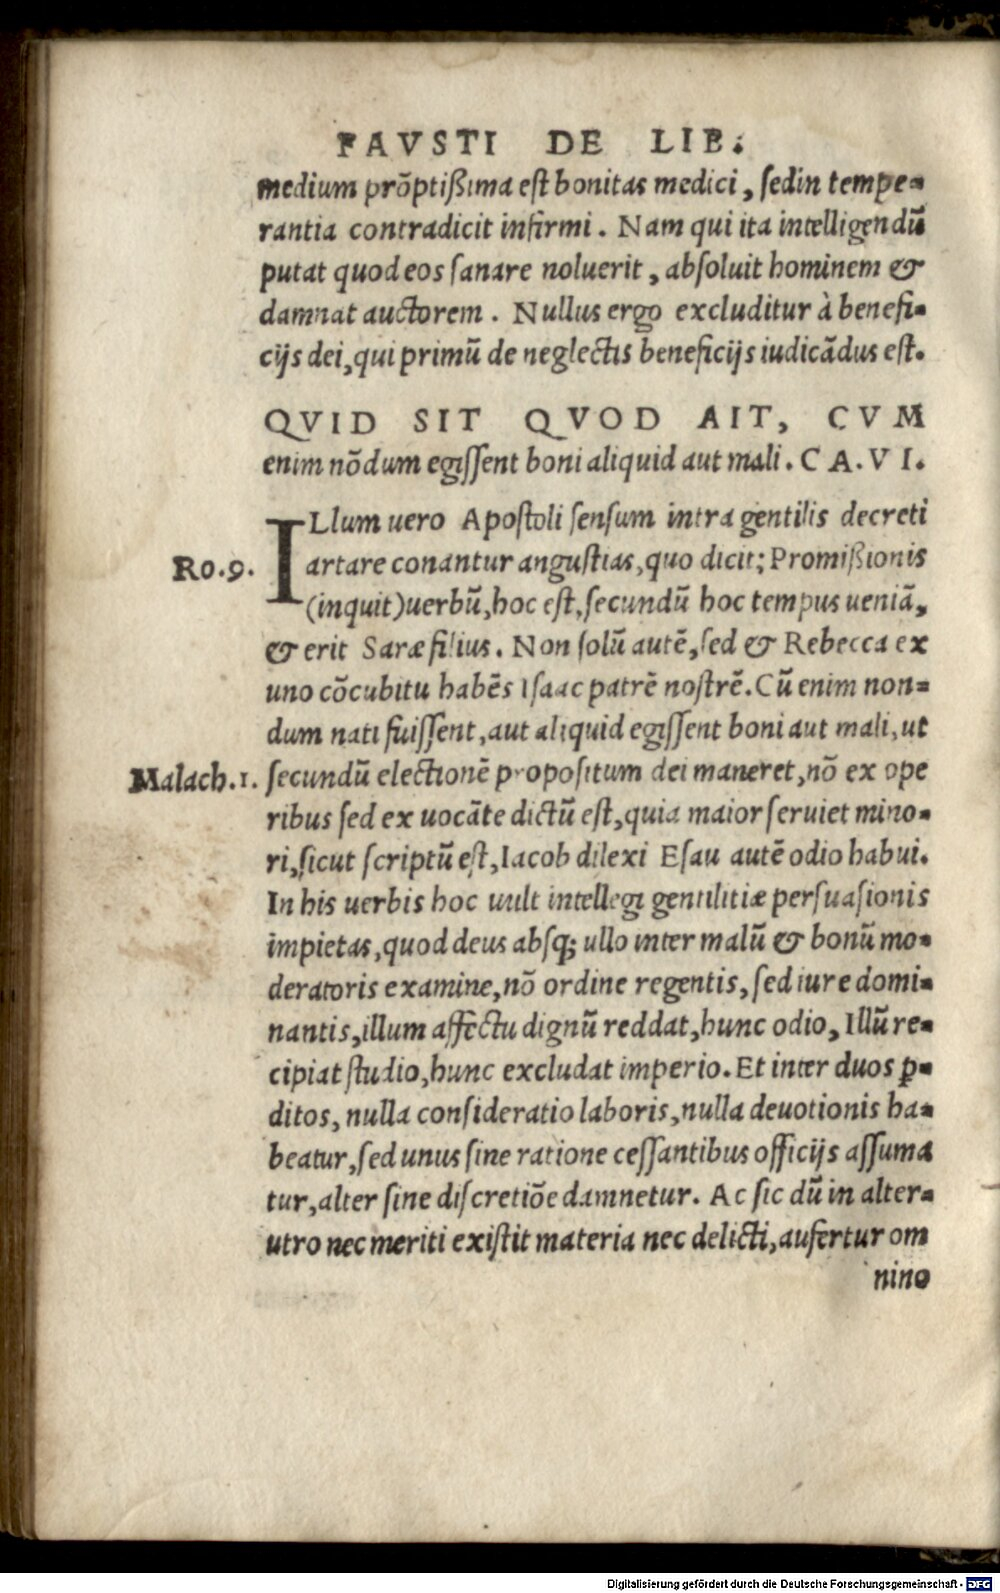 FAVSTI DE LIB.
medium prõptißima est bonitas medici, sed in tempe-
rantia contradicit infirmi. Nam qui ita intelligendũ
putat quod eos sanare noluerit, absoluit hominem &
damnat auctorem. Nullus ergo excluditur à benefi-
cijs dei, qui primũ de neglectis beneficijs iudicãdus est.
QVID SIT QVOD AIT, CVM
enim nõdum egissent boni aliquid aut mali. CA. VI.
ILlum uero Apostoli sensum intra gentilis decreti
Ro.9. artare conantur angustias, quo dicit; Promißionis
(inquit) uerbũ, hoc est, secundũ hoc tempus ueniã,
& erit Saræ filius. Non solũ autẽ, sed & Rebecca ex
uno cõcubitu habẽs Isaac patrẽ nostrẽ. Cũ enim non-
dum nati fuissent, aut aliquid egissent boni aut mali, ut
Malach.1. secundũ electionẽ propositum dei maneret, nõ ex ope
ribus sed ex uocãte dictũ est, quia maior seruiet mino-
ri, sicut scriptũ est, Iacob dilexi Esau autẽ odio habui.
In his uerbis hoc uult intellegi gentilitiæ persuasionis
impietas, quod deus absq; ullo inter malũ & bonũ mo-
deratoris examine, nõ ordine regentis, sed iure domi-
nantis, illum affectu dignũ reddat, hunc odio, Illũ re-
cipiat studio, hunc excludat imperio. Et inter duos ꝑ-
ditos, nulla consideratio laboris, nulla deuotionis ha-
beatur, sed unus sine ratione cessantibus officijs assuma
tur, alter sine discretiõe damnetur. Ac sic dũ in alter-
utro nec meriti existit materia nec delicti, aufertur om
nino
Digitalisierung gefördert durch die Deutsche Forschungsgemeinschaft - DFG